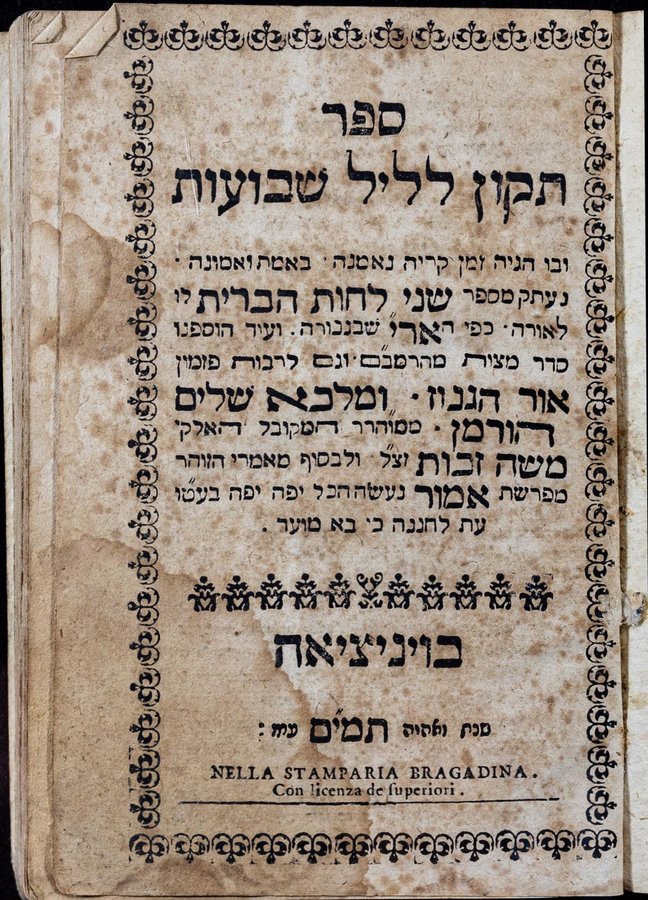 ספר
תקון לליל שבועות
ובו הגיה זמן קריה נאמנה · באמת ואמונה ·
נעתק מספר שני לחות הברית לו
לאורה · כפי האר״י שבגבורה . ועוד הוספנו
סדר מצות מהרמב״ם וגם לרבות פזמון
אור הגנוז · ומלכא שלים
הורמן · ממוהרר המקובל האלקי
משה זכות זצ״ל · ולבסוף מאמרי הזוהר
מפרשת אמור נעשה הכל יפה יפה בעטו
עת לחננה כי בא מועד .
בויניציאה
שנת ואהיה תמ״ים עמו :
NELLA STAMPARIA BRAGADINA .
Con licenza de ſuperiori .